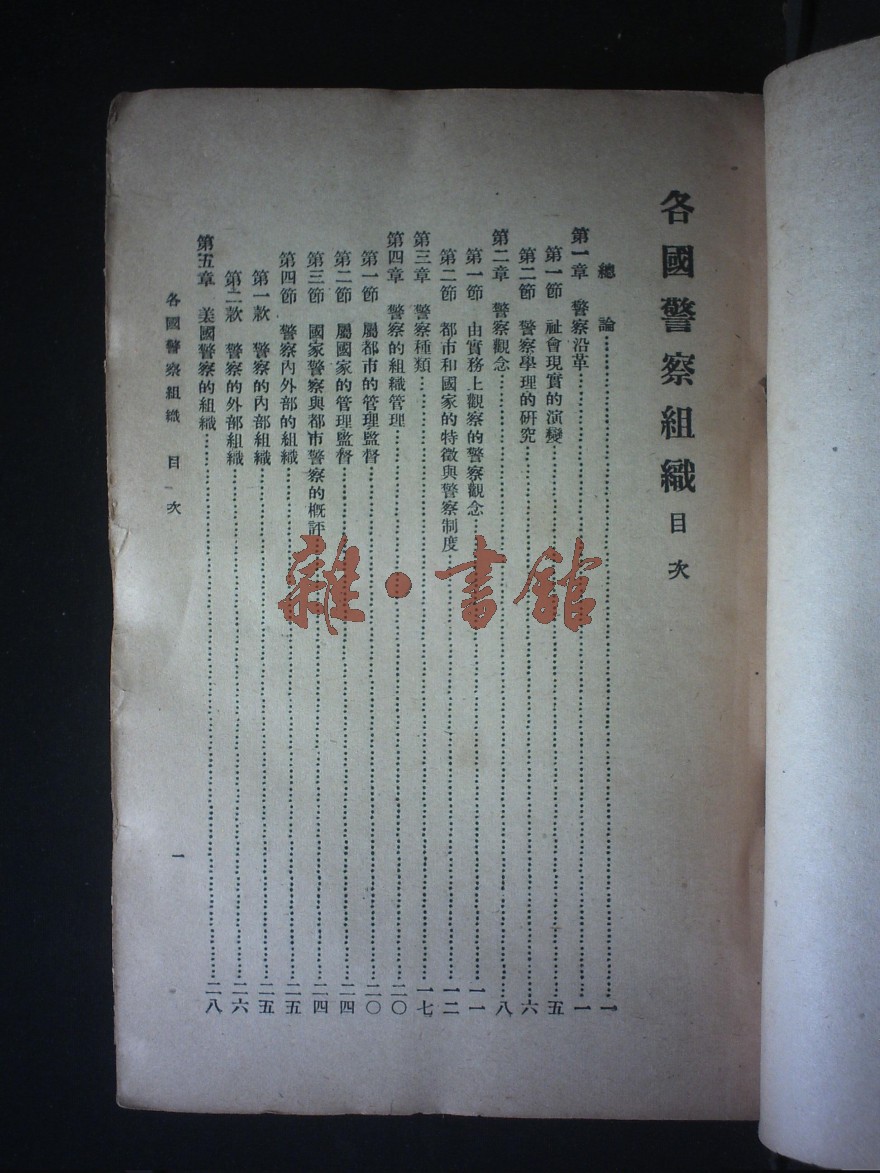 各國警察組織 目次
總論……一
第一章 警察沿革……一
第一節 社會現實的演變……五
第二節 警察學理的研究……六
第二章 警察觀念……八
第一節 由實務上觀察的警察觀念……一一
第二節 都市和國家的特徵與警察制度……一二
第三章 警察種類……一七
第四章 警察的組織管理……二〇
第一節 屬都市的管理監督……二〇
第二節 屬國家的管理監督……二四
第三節 國家警察與都市警察的概評……二四
第四節 警察內外部的組織……二五
第一款 警察的內部組織……二五
第二款 警察的外部組織……二六
第五章 美國警察的組織……二八
各國警察組織 目次
一
雜·書館